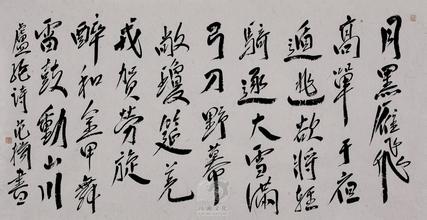 月黑雁飛
高單于夜
遁逃欲將輕
騎逐大雪滿
弓刀野幕
敞瓊筵羌
戎賀勞旋
醉和金甲舞
雷鼓動山川
盧綸詩 范 書